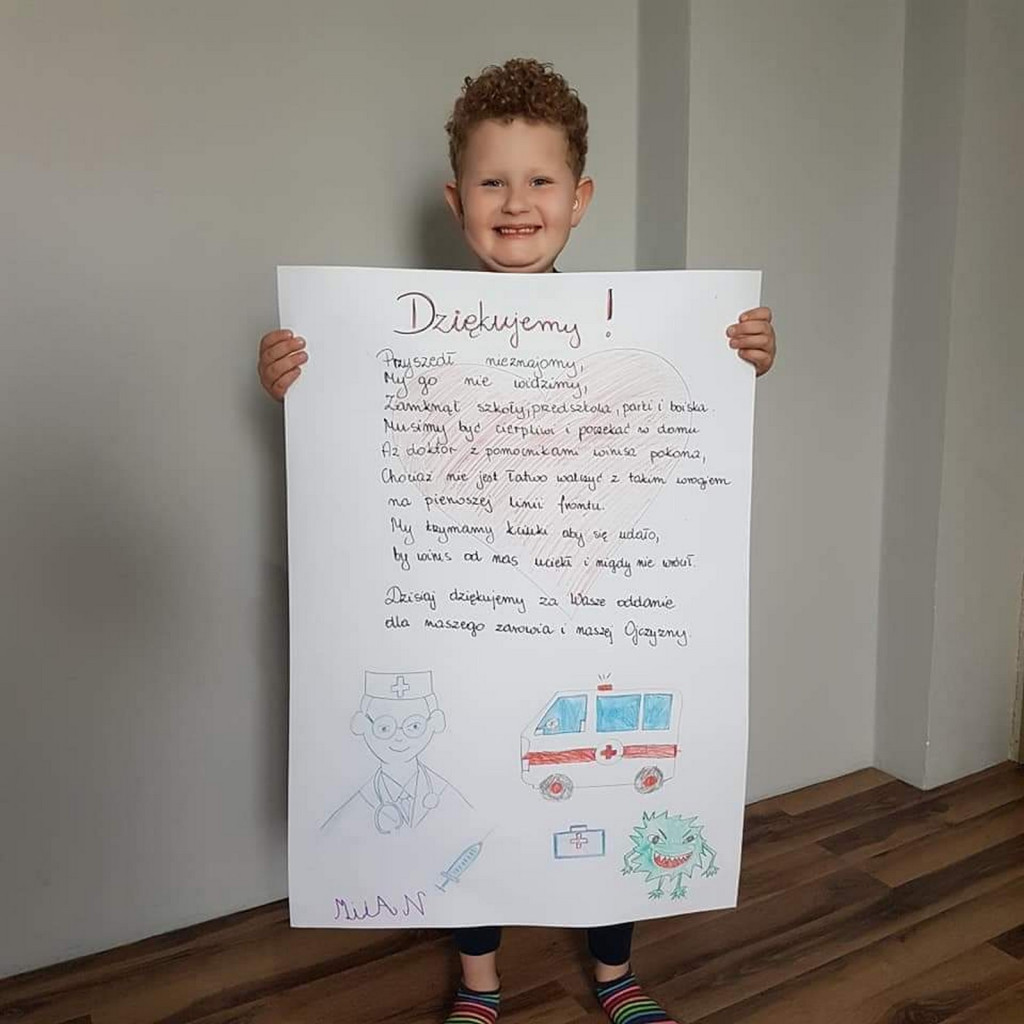 Dziękujemy !
Przyszedł nieznajomy,
My go nie widzimy,
Zamknął szkoły, przedszkola, parki i boiska.
Musimy być cierpliwi i poczekać w domu
Aż doktor z pomocnikami wirusa pokona,
Chociaż nie jest łatwo walczyć z takim wrogiem
na pierwszej linii frontu.
My trzymamy kciuki aby się udało,
by wirus od nas uciekł i nigdy nie wrócił.
Dzisiaj dziękujemy za Wasze oddanie
dla naszego zdrowia i naszej Ojczyzny.
MilAN